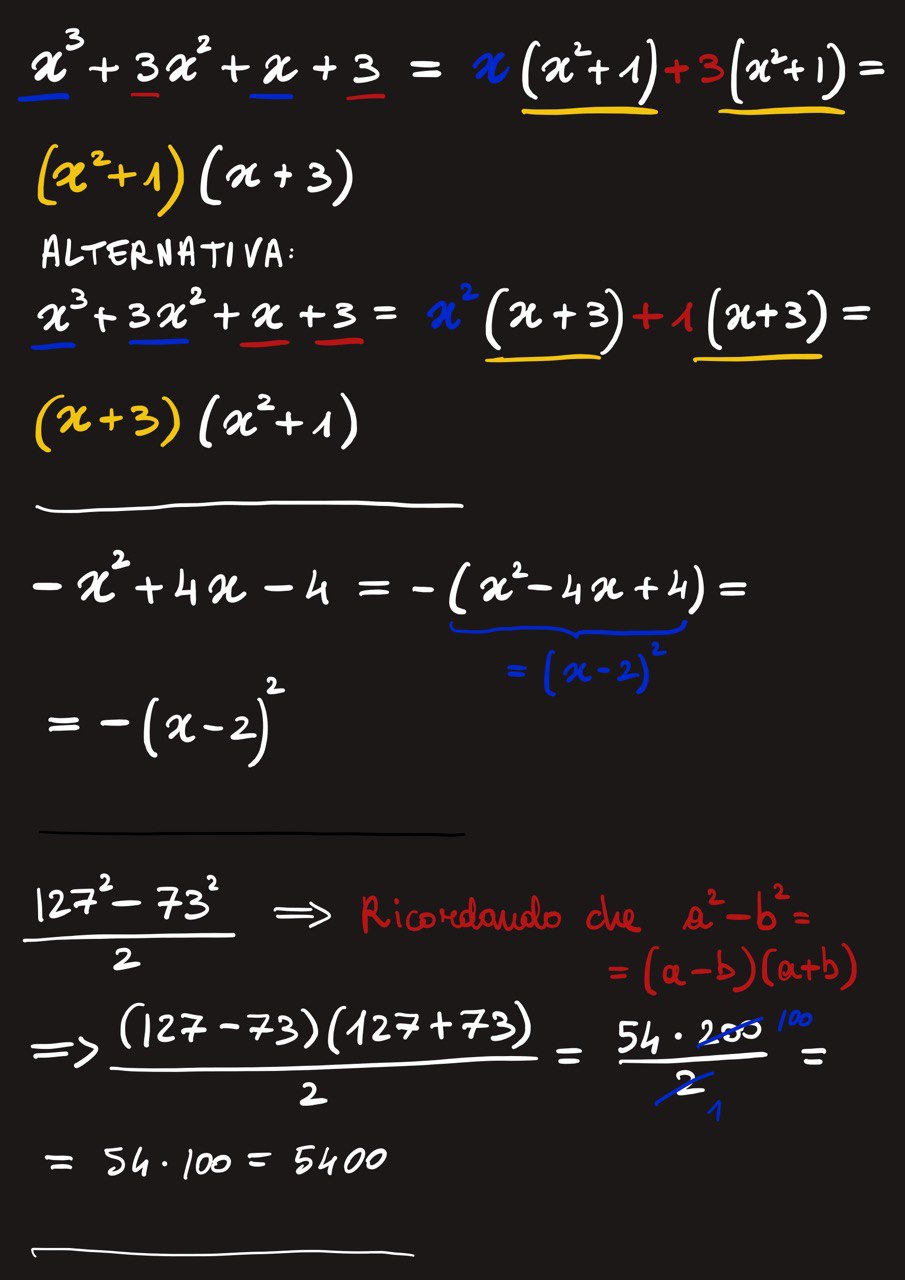 x³ + 3x² + x + 3 = x (x² + 1) + 3 (x² + 1) =
(x² + 1) (x + 3)
ALTERNATIVA:
x³ + 3x² + x + 3 = x² (x + 3) + 1 (x + 3) =
(x + 3) (x² + 1)
- x² + 4x - 4 = - (x² - 4x + 4) =
= (x - 2)²
= - (x - 2)²
(127² - 73²)/2 ⇒ Ricordando che a² - b² =
= (a - b)(a + b)
=> (127 - 73)(127 + 73)/2 = 54 · 200/2 =
100
1
= 54 · 100 = 5400